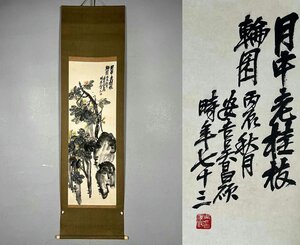 月中老桂枝
輪囷丙辰秋月
安吉吳昌碩
時年七十三